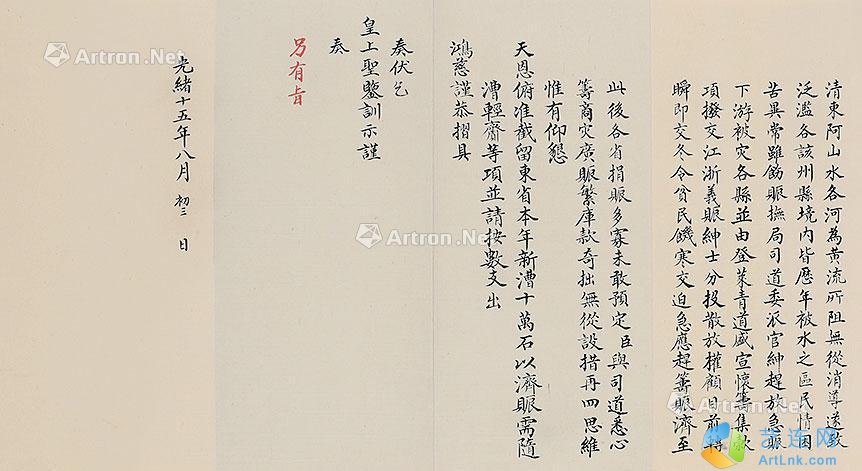 清東阿山水各河為黃流所阻無從消導遂致
泛濫各該州縣境內皆歷年被水之區民情困
苦異常雖飭賑撫局司道委派官紳趕放急賑
下游被灾各縣並由登萊青道盛宣懷籌集欵
項撥交江浙義賑紳士分投散放權顧目前轉
瞬即交冬令貧民饑寒交迫急應趕籌賑濟至
此後各省捐賑多寡未敢預定臣與司道悉心
籌商灾廣賑繁庫款奇拙無從設措再四思維
惟有仰懇
天恩俯准截留東省本年新漕十萬石以濟賑需隨
漕輕齎等項並請按數支出
鴻慈謹恭摺具
奏伏乞
皇上聖鑒訓示謹
奏
另有旨
光緒十五年八月 初三 日
Artron.Net
Artron.Net
Artron.Net
Artron.Net
Artron.Net
艺连网
ArtLnk.com